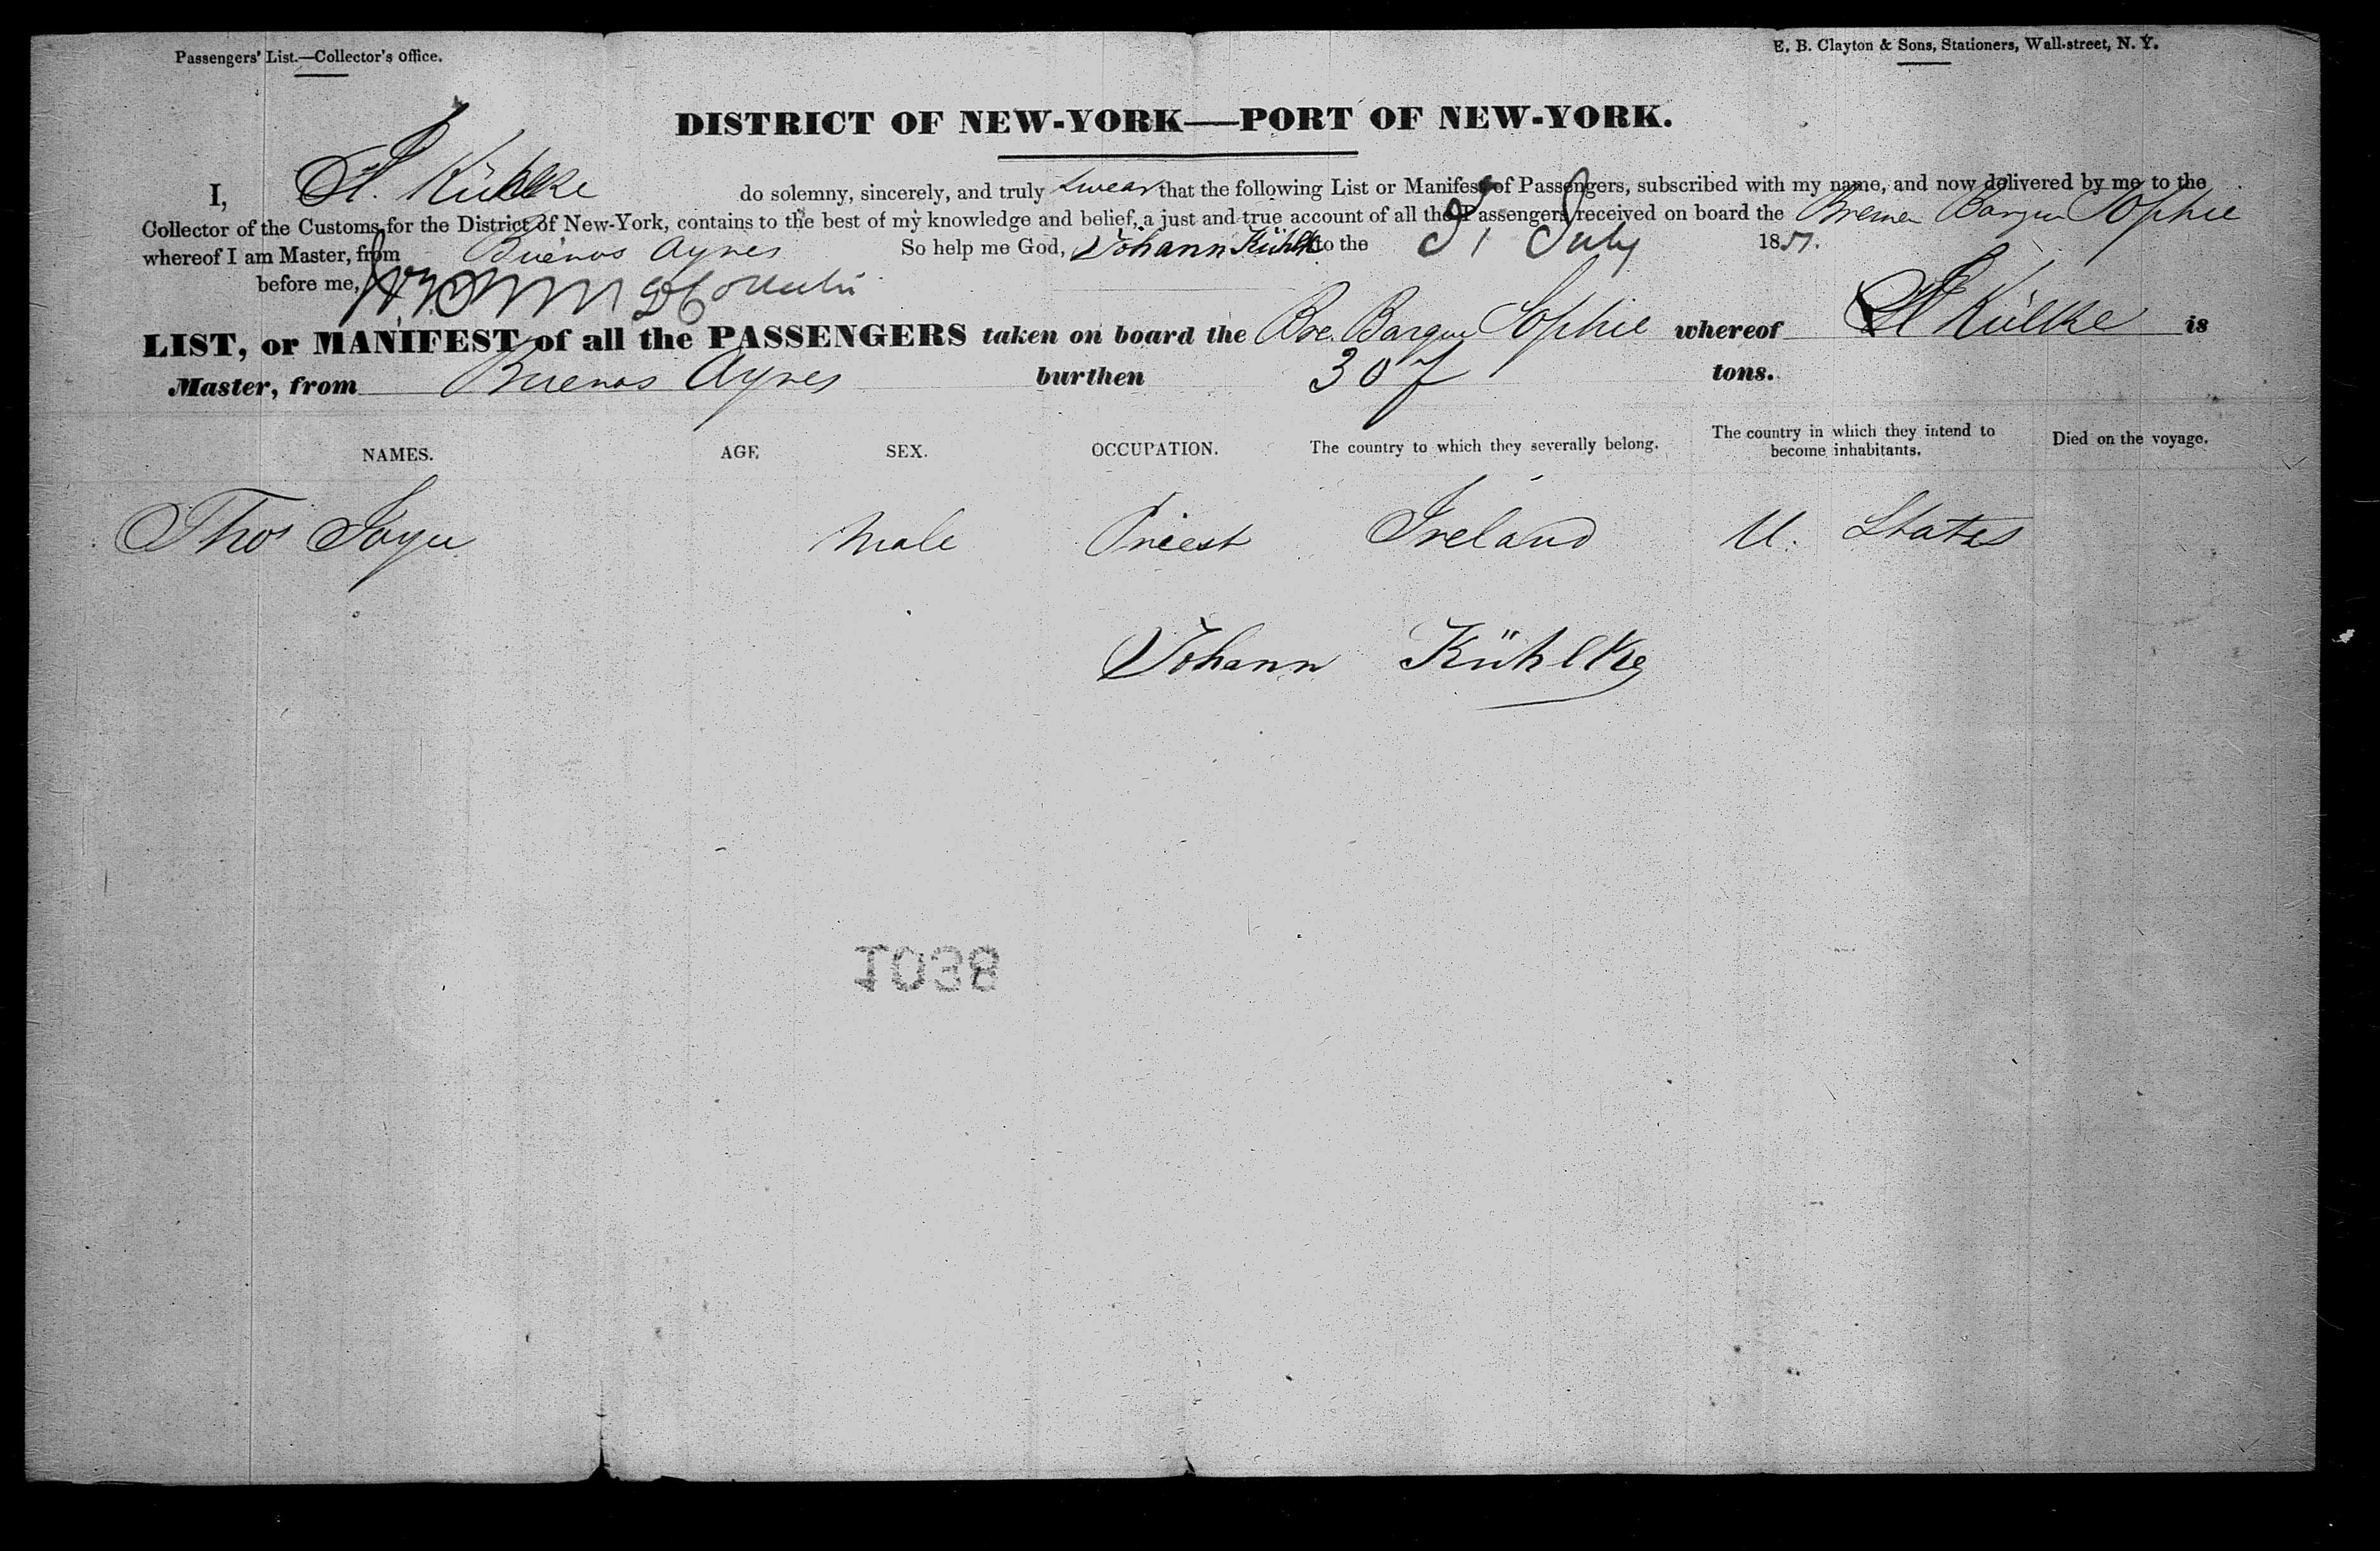 Passengers' List.—Collector's Office.
E. B. Clayton & Sons, Stationers, Wall-street, N. Y.
DISTRICT OF NEW-YORK—PORT OF NEW-YORK.
I, Kühlke do solemny, sincerely, and truly swear that the following List or Manifest of Passengers, subscribed with my name, and now delivered by me to the
Collector of the Customs for the District of New-York, contains to the best of my knowledge and belief, a just and true account of all the Passengers received on board the Bremen Barque Sophie
whereof I am Master, from Buenos Ayres So help me God, Johann Kühlke to the July 1851.
before me,
LIST, or MANIFEST of all the PASSENGERS taken on board the Bre. Barque Sophie whereof Külke is
Master, from Buenos Ayres burthen 307 tons.
NAMES. AGE SEX. OCCUPATION. The country to which they severally belong. The country in which they intend to become inhabitants. Died on the voyage.
Thos Joyce Male Priest Ireland U. States
Johann Kühlke
1038